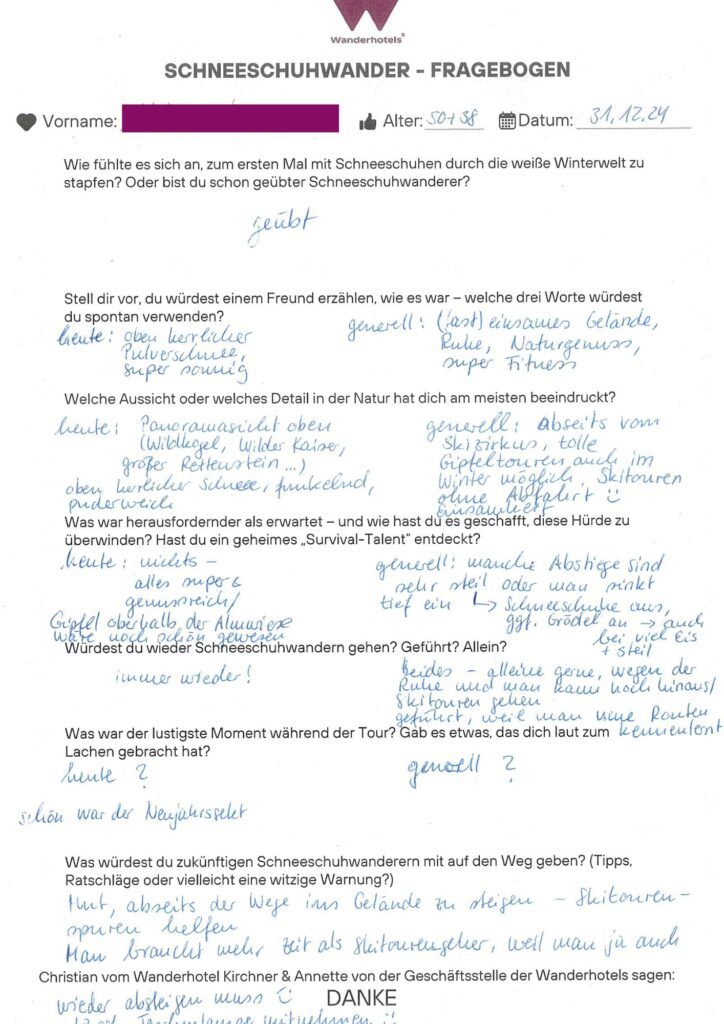 Wanderhotels®
SCHNEESCHUHWANDER - FRAGEBOGEN
Vorname:
Alter: 50+38
Datum: 31.12.24
Wie fühlte es sich an, zum ersten Mal mit Schneeschuhen durch die weiße Winterwelt zu
stapfen? Oder bist du schon geübter Schneeschuhwanderer?
geübt
Stell dir vor, du würdest einem Freund erzählen, wie es war – welche drei Worte würdest
du spontan verwenden?
heute: oben herrlicher
Pulverschnee,
super sonnig
generell: (fast) einsames Gelände,
Ruhe, Naturgenuss,
super Fitness
Welche Aussicht oder welches Detail in der Natur hat dich am meisten beeindruckt?
heute: Panoramasicht oben
(Wildkogel, Wilder Kaiser,
großer Rettenstein...)
oben herrlicher Schnee, funkelnd,
puderweich
generell: abseits vom
Skizirkus, tolle
Gipfeltouren auch im
Winter möglich, Skitouren
ohne Abfahrt ☺
Was war herausfordernder als erwartet – und wie hast du es geschafft, diese Hürde zu
überwinden? Hast du ein geheimes „Survival-Talent" entdeckt?
heute: nichts –
alles super &
genussreich/
Gipfel oberhalb der Almwiese
wäre noch schön gewesen
generell: manche Abstiege sind
sehr steil oder man sinkt
tief ein ↳ Schneeschuhe aus,
ggf. Grödel an → auch
bei viel Eis
+ steil
Würdest du wieder Schneeschuhwandern gehen? Geführt? Allein?
immer wieder!
Beides – alleine gerne, wegen der
Ruhe und man kann hoch hinaus/
Skitouren gehen
geführt, weil man neue Routen
kennenlernt
Was war der lustigste Moment während der Tour? Gab es etwas, das dich laut zum
Lachen gebracht hat?
heute ?
generell ?
schön war der Neujahrssekt
Was würdest du zukünftigen Schneeschuhwanderern mit auf den Weg geben? (Tipps,
Ratschläge oder vielleicht eine witzige Warnung?)
Mut, abseits der Wege ins Gelände zu steigen – Skitouren-
spuren helfen
Man braucht mehr Zeit als Skitourengeher, weil man ja auch
Christian vom Wanderhotel Kirchner & Annette von der Geschäftsstelle der Wanderhotels sagen:
wieder absteigen muss ☺
DANKE
Taschenlampe mitnehmen